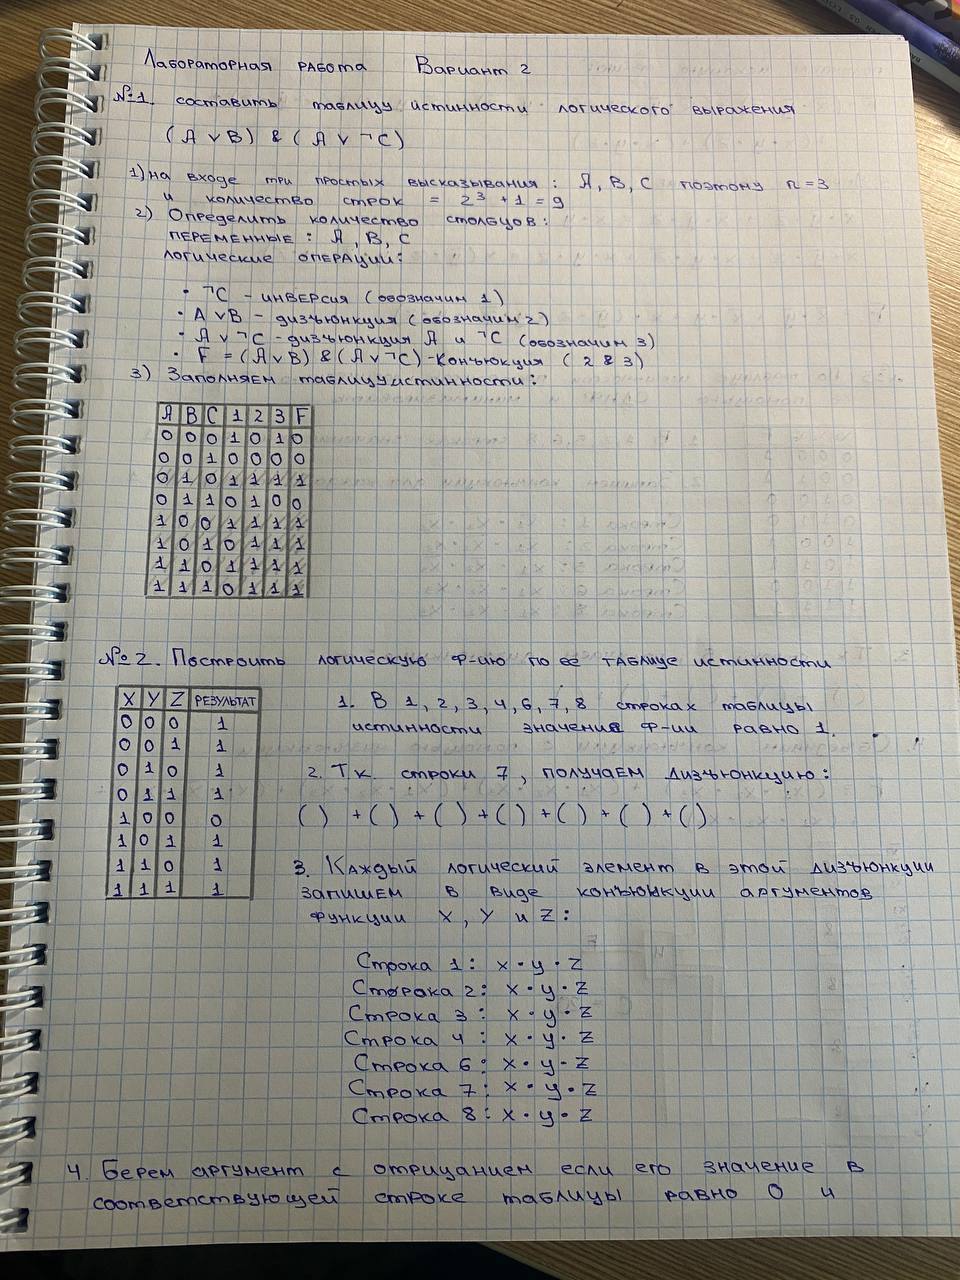 Лабораторная работа Вариант 2
№1. составить таблицу истинности логического выражения
(A ∨ B) & (A ∨ ¬C)
1) на входе три простых высказывания: А, В, С поэтому n=3
и количество строк = 2³ + 1 = 9
2) Определить количество столбцов:
переменные: А, В, С
логические операции:
• ¬C - инверсия (обозначим 1)
• A ∨ B - дизъюнкция (обозначим 2)
• A ∨ ¬C - дизъюнкция А и ¬C (обозначим 3)
• F = (A ∨ B) & (A ∨ ¬C) - Конъюкция (2 & 3)
3) Заполняем таблицу истинности:
A B C 1 2 3 F
0 0 0 1 0 1 0
0 0 1 0 0 0 0
0 1 0 1 1 1 1
0 1 1 0 1 0 0
1 0 0 1 1 1 1
1 0 1 0 1 1 1
1 1 0 1 1 1 1
1 1 1 0 1 1 1
№2. Построить логическую ф-ию по её таблице истинности
X Y Z результат
0 0 0 1
0 0 1 1
0 1 0 1
0 1 1 1
1 0 0 0
1 0 1 1
1 1 0 1
1 1 1 1
1. В 1, 2, 3, 4, 6, 7, 8 строках таблицы
истинности значения ф-ии равно 1.
2. Т.к. строки 7, получаем дизъюнкцию:
( ) + ( ) + ( ) + ( ) + ( ) + ( ) + ( )
3. Каждый логический элемент в этой дизъюнкции
запишем в виде конъюнкции аргументов
функции X, Y и Z:
Строка 1: x · y · z
Строка 2: x · y · z
Строка 3: x · y · z
Строка 4: x · y · z
Строка 6: x · y · z
Строка 7: x · y · z
Строка 8: x · y · z
4. Берем аргумент с отрицанием если его значение в
соответствующей строке таблицы равно 0 и